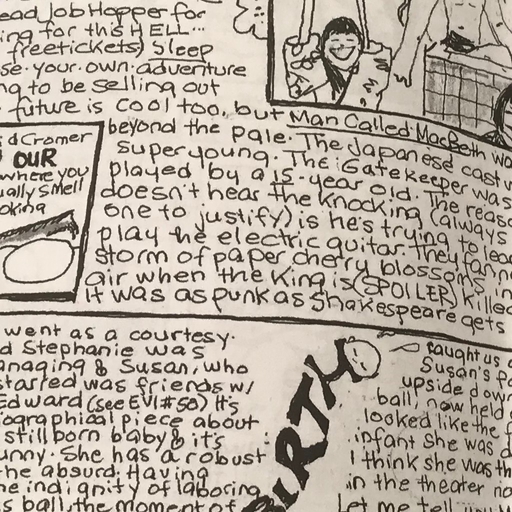 ead Job Hopper for
ing for this HELL...
freetickets) Sleep
se•your•own•adventure
ng to be selling out
future is cool too, but Man Called MacBeth wa
beyond the pale. The Japanese cast w
super young. The Gatekeeper was
played by a 15-year old. The reaso
doesn't hear the knocking (always
one to justify) is he's trying to lea
play the electric guitar. They fanne
storm of paper cherry blossoms in
air when the King is (SPOILER) killed
It was as punk as Shakespeare gets
d Cromer
OUR
where you
ually smell
oking
went as a courtesy.
d Stephanie was
anaging & Susan, who
started was friends w/
Edward (see EVI #58) It's
ographical piece about
still born baby & it's
unny. She has a robust
the absurd. Having
he indignity of laboring
s ball, the moment of
BIRTH
caught us
Susan's f
upside down
ball, now held
looked like the f
infant she was d
I think she was th
in the theater no
Let me tell you